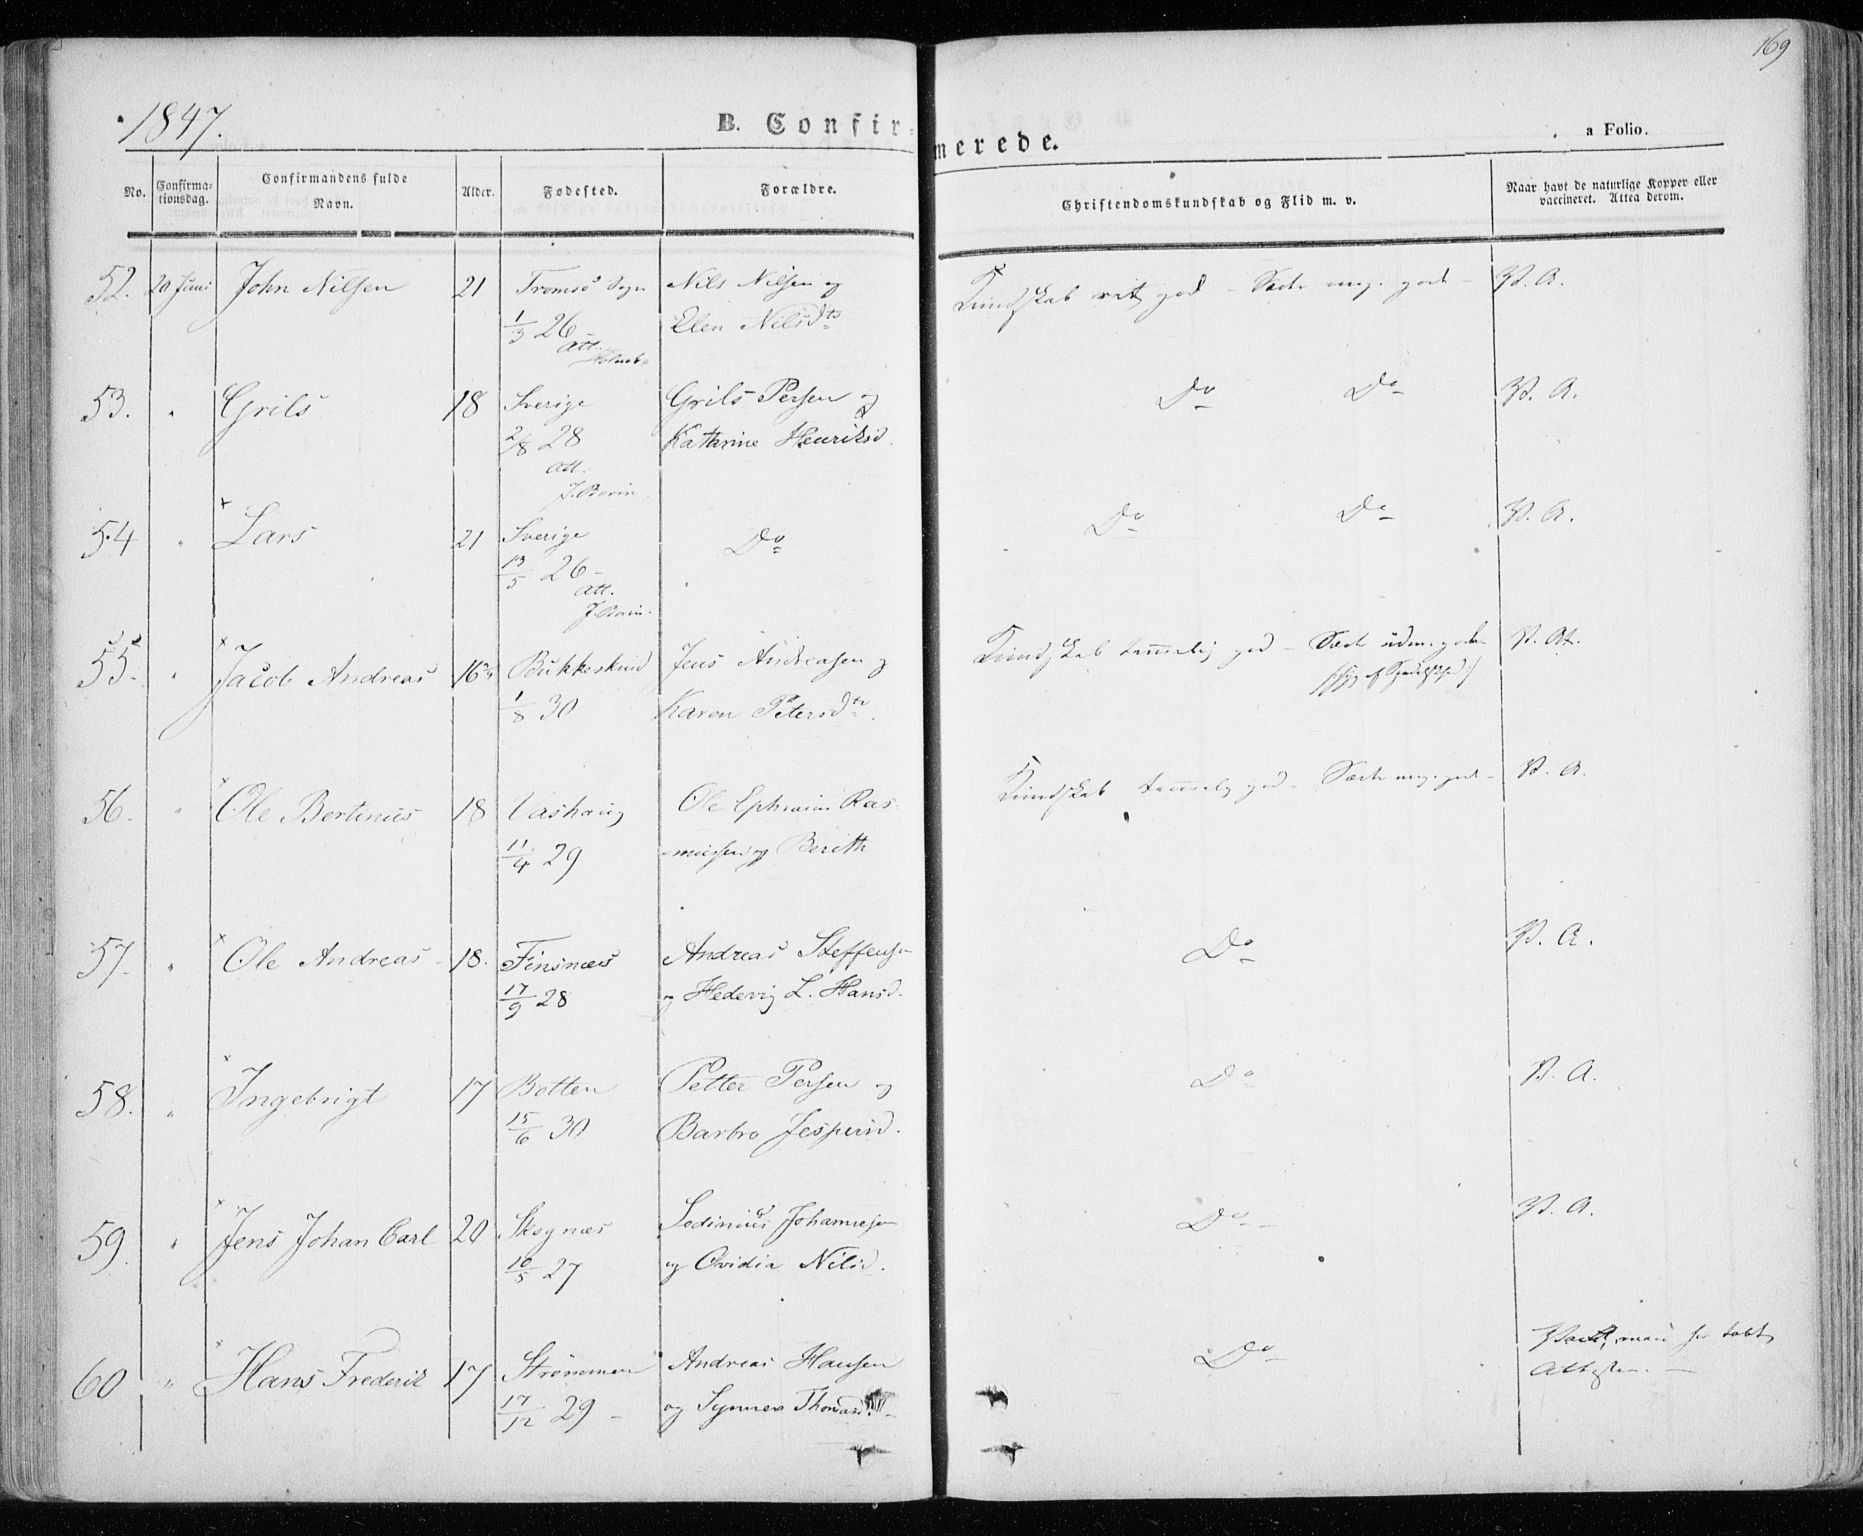 169
1847.
B. Confir=
merede.
a Folio.
No.
Confirma-
tionsdag.
Confirmandens fulde
Navn.
Alder.
Fødested.
Forældre.
Christendomskundskab og Flid m. v.
Naar havt de naturlige Kopper eller
vaccineret. Attea derom.
52. 20 Juni John Nilsen 21 Tromsö Sogn Nils Nilsen og Kundskab ret god - Sæde meg. god - V. A.
1/3 26 - Elen Nilsdtr
att.
53. " Grils 18 Sverige Grils Persen og Do Do V. A.
2/8 28 Kathrine Henriksd.
att.
J. Borin
54 " Lars 21 Sverige Do Do Do V. A.
13/5 26 -
att.
J. Borin.
55. " Jacob Andreas 16 3/4 Bukkeskind Jens Andreasen og Kundskab temmelig god - Sæde V. At.
1/8 30 Karen Petersdtr.
56. " Ole Bertinus 18 Vashaug Ole Ephraim Ras- Kundskab temmelig god - Sæde meg. god - V. A.
11/4 29 -mussen og Berith
57. " Ole Andreas - 18. Finsnæs Andreas Steffensen Do V. A.
17/9 28 og Hedevig L. Hansd.
58. " Ingebrigt 17 Botten Petter Persen og Do V. A.
15/6 30 Barbro Jespersd.
59. " Jens Johan Carl 20 Skognæs Sedinius Johannesen Do - V. A.
10/5 27 og Ovidia Nilsd.
60 " Hans Frederik 17 Strömmen Andreas Hansen Do Vacc., man har tabt
17/12 29 - og Synnev Thomasd. - Attesten. -